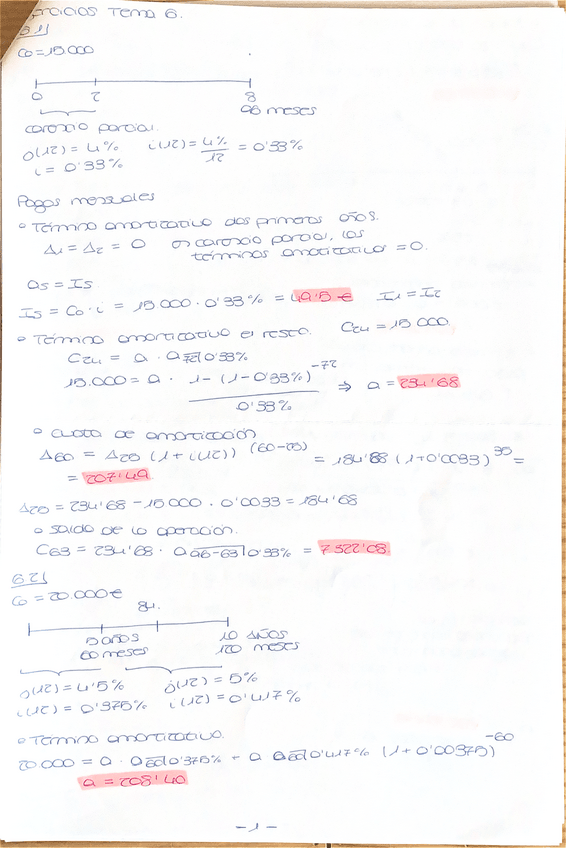 Tema 6.
6.1)
C₀ = 15.000
0 2 8
96 meses
carencia parcial.
j(12) = 4% i(12) = 4%/12 = 0'33%
i = 0'33%
Pagos mensuales
• Término amortizativo dos primeros años.
A₁ = A₂ = 0 en carencia parcial, los
términos amortizativos = 0.
as = Is
Is = C₀ · i = 15.000 · 0'33% = 49'5 € I₁ = I₂
• Término amortizativo el resto. C₂₄ = 15 000
C₂₄ = a · a 72|0'33%
15.000 = a · 1 - (1-0'33%)⁻⁷² / 0'33% ⇒ a = 234'68
• Cuota de amortización
A₆₀ = A₂₅ (1 + i(12))^(60-25) = 184'68 (1+0'0033)^35 =
= 207'49
A₂₅ = 234'68 - 15 000 · 0'0033 = 184'68
• Saldo de la operación.
C₆₃ = 234'68 · a 96-63|0'33% = 7322'08
6.2)
C₀ = 20.000€
84.
5 años 10 años
60 meses 120 meses
j(12) = 4'5% j(12) = 5%
i(12) = 0'375% i(12) = 0'417%
• Término amortizativo.
20.000 = a · a 60|0'375% + a a 60|0'417% (1 + 0'00375)⁻⁶⁰
a = 208'40
- 1 -